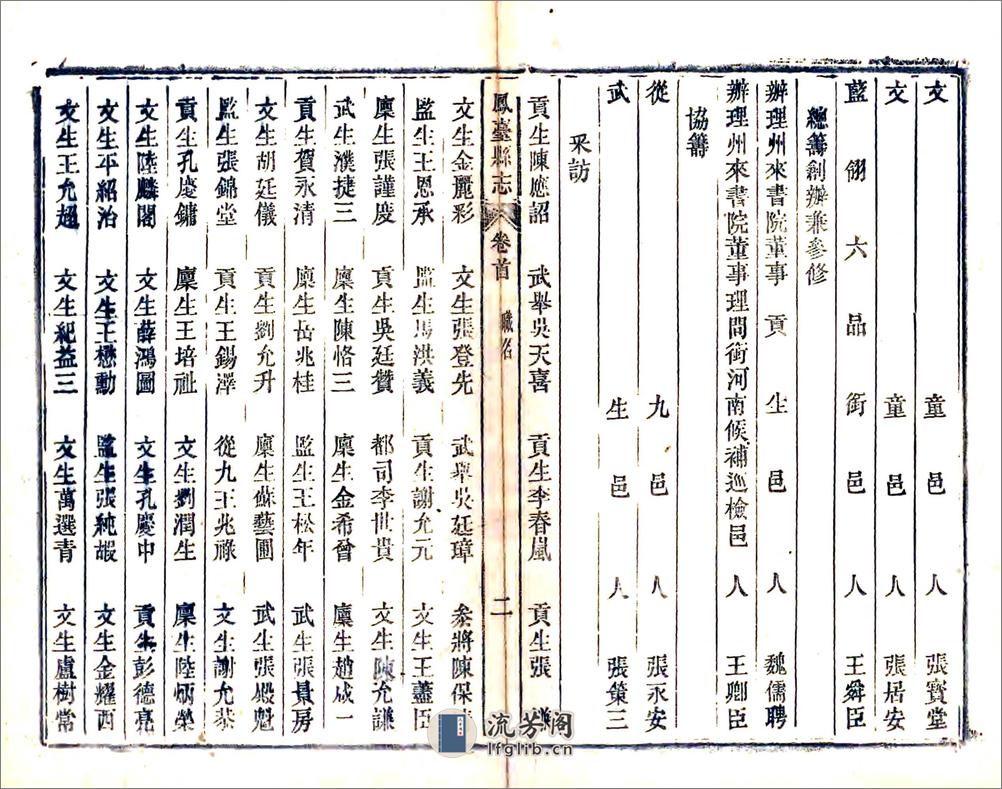 文童邑人張寶堂
文童邑人張居安
藍翎六品銜邑人王舜臣
總籌創辦兼參修
辦理州來書院董事貢生邑人魏儒聘
辦理州來書院董事理問銜河南候補巡檢邑人王卿臣
協籌
從九邑人張永安
武生邑人張策三
采訪
貢生陳應詔 武舉吳天喜 貢生李春嵐 貢生張謙
鳳臺縣志 卷首 職名 二
文生金麗彩 文生張登先 武舉吳廷璋 叅將陳保
監生王恩承 監生馬洪義 貢生謝允元 文生王藎臣
廩生張謹慶 貢生吳廷贊 都司李世貴 文生陳允謙
武生濮捷三 廩生陳恪三 廩生金希曾 廩生趙成一
貢生賀永清 廩生岳兆桂 監生王松年 武生張景房
文生胡廷儀 貢生劉允升 廩生蘇藝圃 武生張殿魁
監生張錦堂 貢生王錫澤 從九王兆祿 文生謝允恭
貢生孔慶鏞 廩生王培祉 文生劉潤生 廩生陸炳榮
文生陸麟閣 文生薛鴻圖 文生孔慶中 貢生彭德亮
文生平紹治 文生王懋勳 監生張純嘏 文生金耀西
文生王允超 文生紀益三 文生萬選青 文生盧樹常
流芳阁
lfglib.cn